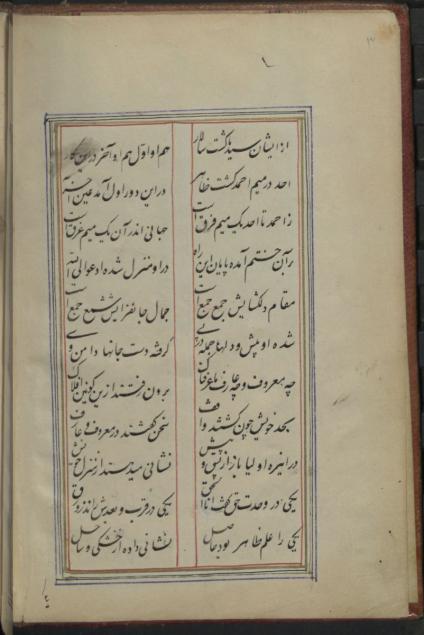 ازایشان سید ما گشت سالار هم او اول هم او آخر درین کار
احد در میم احمد گشت ظاهر درین دور اول آمد عین آخر
ز احمد تا احد یک میم فرقست جهانی اندر آن یک میم غرقست
بر آن ختم آمده پایان این راه در او منزل شده ادعوا الی الله
مقام دلکشایش جمع جمع است جمال جانفزایش شمع جمع است
شده او پیش و دلها جمله در پی گرفته دست جانها دامن وی
چه معروف و چه عارف ما عرفناک برون رفتند ازین کونین افلاک
بحد خویش چون کشتند واقف سخن گفتند در معروف و عارف
درین ره اولیا باز از پس و پیش نشانی میدهند از منزل خویش
یکی در وحدت حق گفت انا الحق یکی در قرب و بعدش اندر زورق
یکی را علم ظاهر بود حاصل نشانی داده از خشکی و ساحل